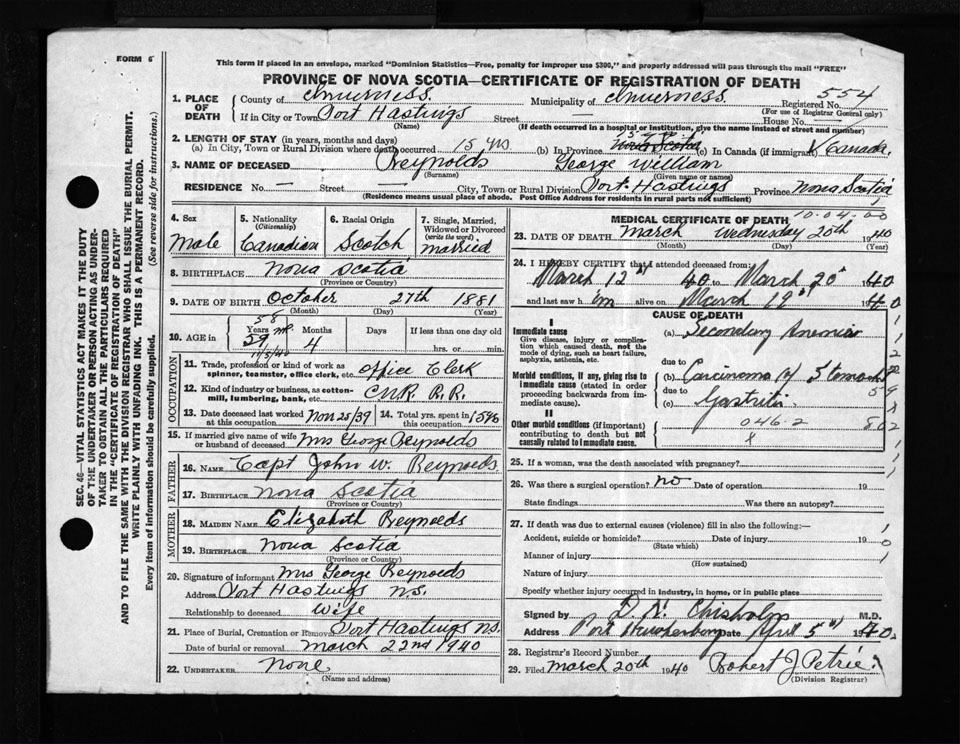 FORM 6
This form if placed in an envelope, marked "Dominion Statistics—Free, penalty for improper use $300," and properly addressed will pass through the mail "FREE"
PROVINCE OF NOVA SCOTIA—CERTIFICATE OF REGISTRATION OF DEATH
SEC. 46—VITAL STATISTICS ACT MAKES IT THE DUTY
OF THE UNDERTAKER OR PERSON ACTING AS UNDER-
TAKER TO OBTAIN ALL THE PARTICULARS REQUIRED
IN THE "CERTIFICATE OF REGISTRATION OF DEATH"
AND TO FILE THE SAME WITH THE DIVISION REGISTRAR WHO SHALL ISSUE THE BURIAL PERMIT.
WRITE PLAINLY WITH UNFADING INK. THIS IS A PERMANENT RECORD.
Every item of information should be carefully supplied. (See reverse side for instructions.)
1. PLACE OF DEATH County of Inverness. Municipality of Inverness. Registered No. 554
(For use of Registrar General only)
If in City or Town Port Hastings Street — House No. —
(Name) (If death occurred in a hospital or institution, give the name instead of street and number)
2. LENGTH OF STAY (in years, months and days)
(a) In City, Town or Rural Division where death occurred 15 yrs (b) In Province Nova Scotia (c) In Canada (if immigrant) Canada.
3. NAME OF DECEASED Reynolds George William
(Surname) (Given name or names)
RESIDENCE No. — Street — City, Town or Rural Division Port Hastings Province Nova Scotia
(Residence means usual place of abode. Post Office Address for residents in rural parts not sufficient)
4. Sex Male
5. Nationality (Citizenship) Canadian
6. Racial Origin Scotch
7. Single, Married, Widowed or Divorced (write the word) married
8. BIRTHPLACE Nova Scotia
(Province or Country)
9. DATE OF BIRTH October 27th 1881
(Month) (Day) (Year)
10. AGE in 58 Years 59 Months 4 Days If less than one day old
hrs. or min.
OCCUPATION
11. Trade, profession or kind of work as spinner, teamster, office clerk, etc. office Clerk
12. Kind of industry or business, as cotton-mill, lumbering, bank, etc. C.N.R. R.R.
13. Date deceased last worked at this occupation Nov 25/39 14. Total yrs. spent in this occupation 15
15. If married give name of wife or husband of deceased Mrs George Reynolds
FATHER
16. NAME Capt John W. Reynolds
17. BIRTHPLACE Nova Scotia
(Province or Country)
MOTHER
18. MAIDEN NAME Elizabeth Reynolds
19. BIRTHPLACE Nova Scotia
(Province or Country)
20. Signature of informant Mrs George Reynolds
Address Port Hastings N.S.
Relationship to deceased Wife
21. Place of Burial, Cremation or Removal Port Hastings N.S.
Date of burial or removal march 22nd 1940
22. UNDERTAKER None
(Name and address)
MEDICAL CERTIFICATE OF DEATH
10.04.00
23. DATE OF DEATH March Wednesday 20th 1940
(Month) (Day) (Year)
24. I HEREBY CERTIFY that I attended deceased from:
March 12th 40 to March 20th 1940
and last saw him alive on March 19th 1940
CAUSE OF DEATH
I
Immediate cause
Give disease, injury or complication which caused death, not the mode of dying, such as heart failure, asphyxia, asthenia, etc.
(a) Secondary Anemia
due to
Morbid conditions, if any, giving rise to immediate cause (stated in order proceeding backwards from immediate cause).
(b) Carcinoma of Stomach
due to
(c) Gastritis
II
Other morbid conditions (if important) contributing to death but not causally related to immediate cause.
046.2
25. If a woman, was the death associated with pregnancy?
26. Was there a surgical operation? no Date of operation 19
State findings Was there an autopsy?
27. If death was due to external causes (violence) fill in also the following:—
Accident, suicide or homicide? Date of injury 19
(State which)
Manner of injury
(How sustained)
Nature of injury
Specify whether injury occurred in industry, in home, or in public place
Signed by Chisholm M.D.
Address Port Hawkesbury Date April 5th 1940.
28. Registrar's Record Number
29. Filed March 20th 1940 Robert J. Petrie.
(Division Registrar)